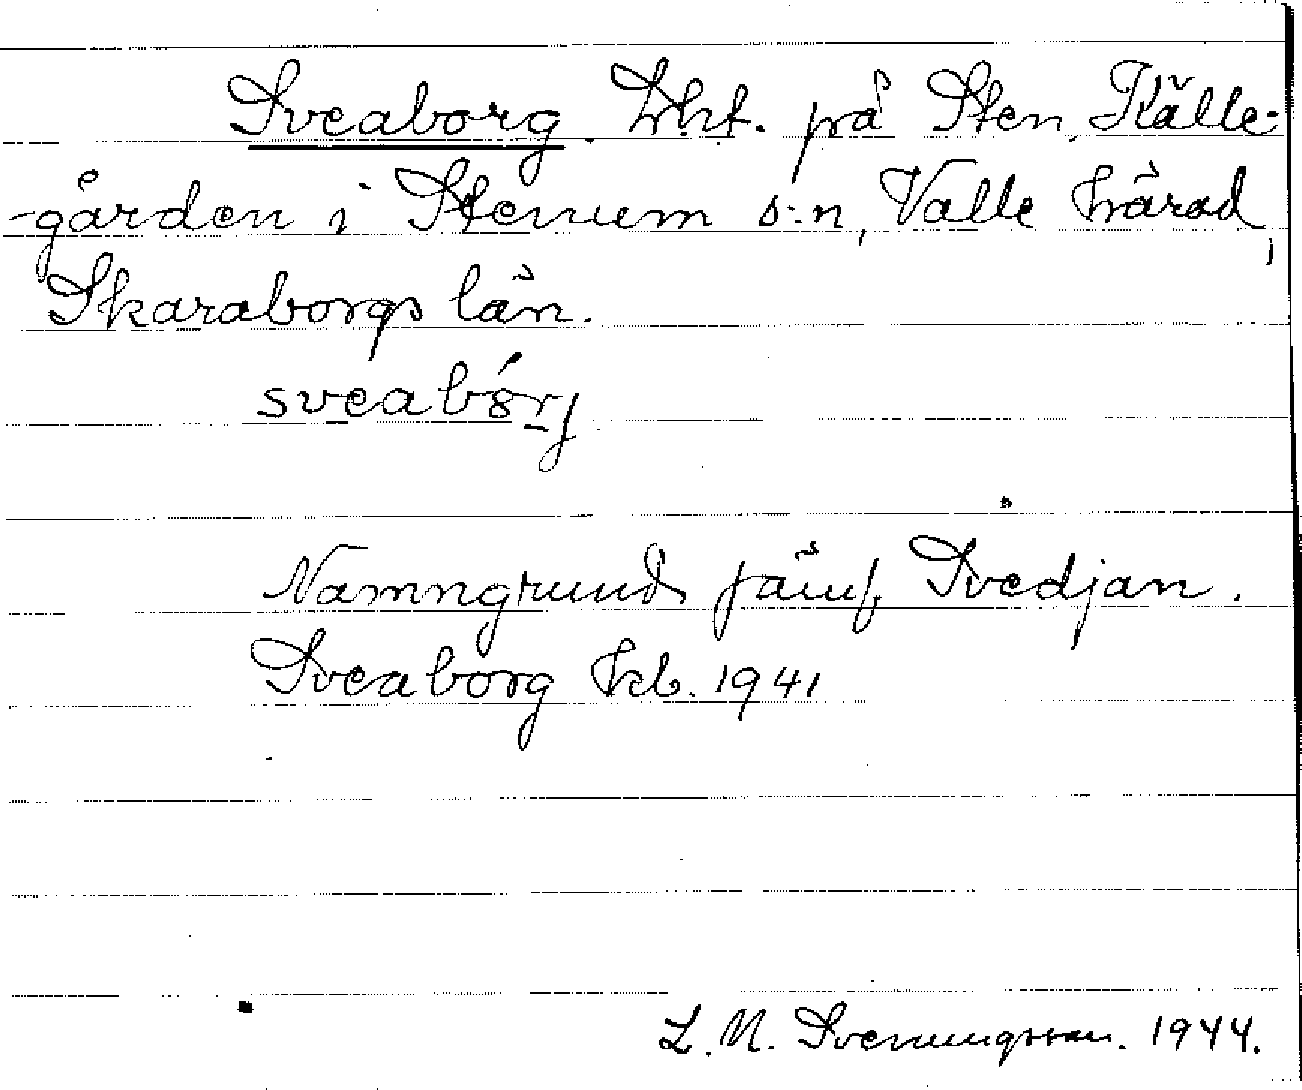 Sveaborg. Lht. på Sten, Källe-
-gården i Stenum s:n, Valle härad,
Skaraborgs län.
sveabórj
Namngrund jämf. Svedjan.
Sveaborg kb. 1941
L. N. Svenungsson. 1944.